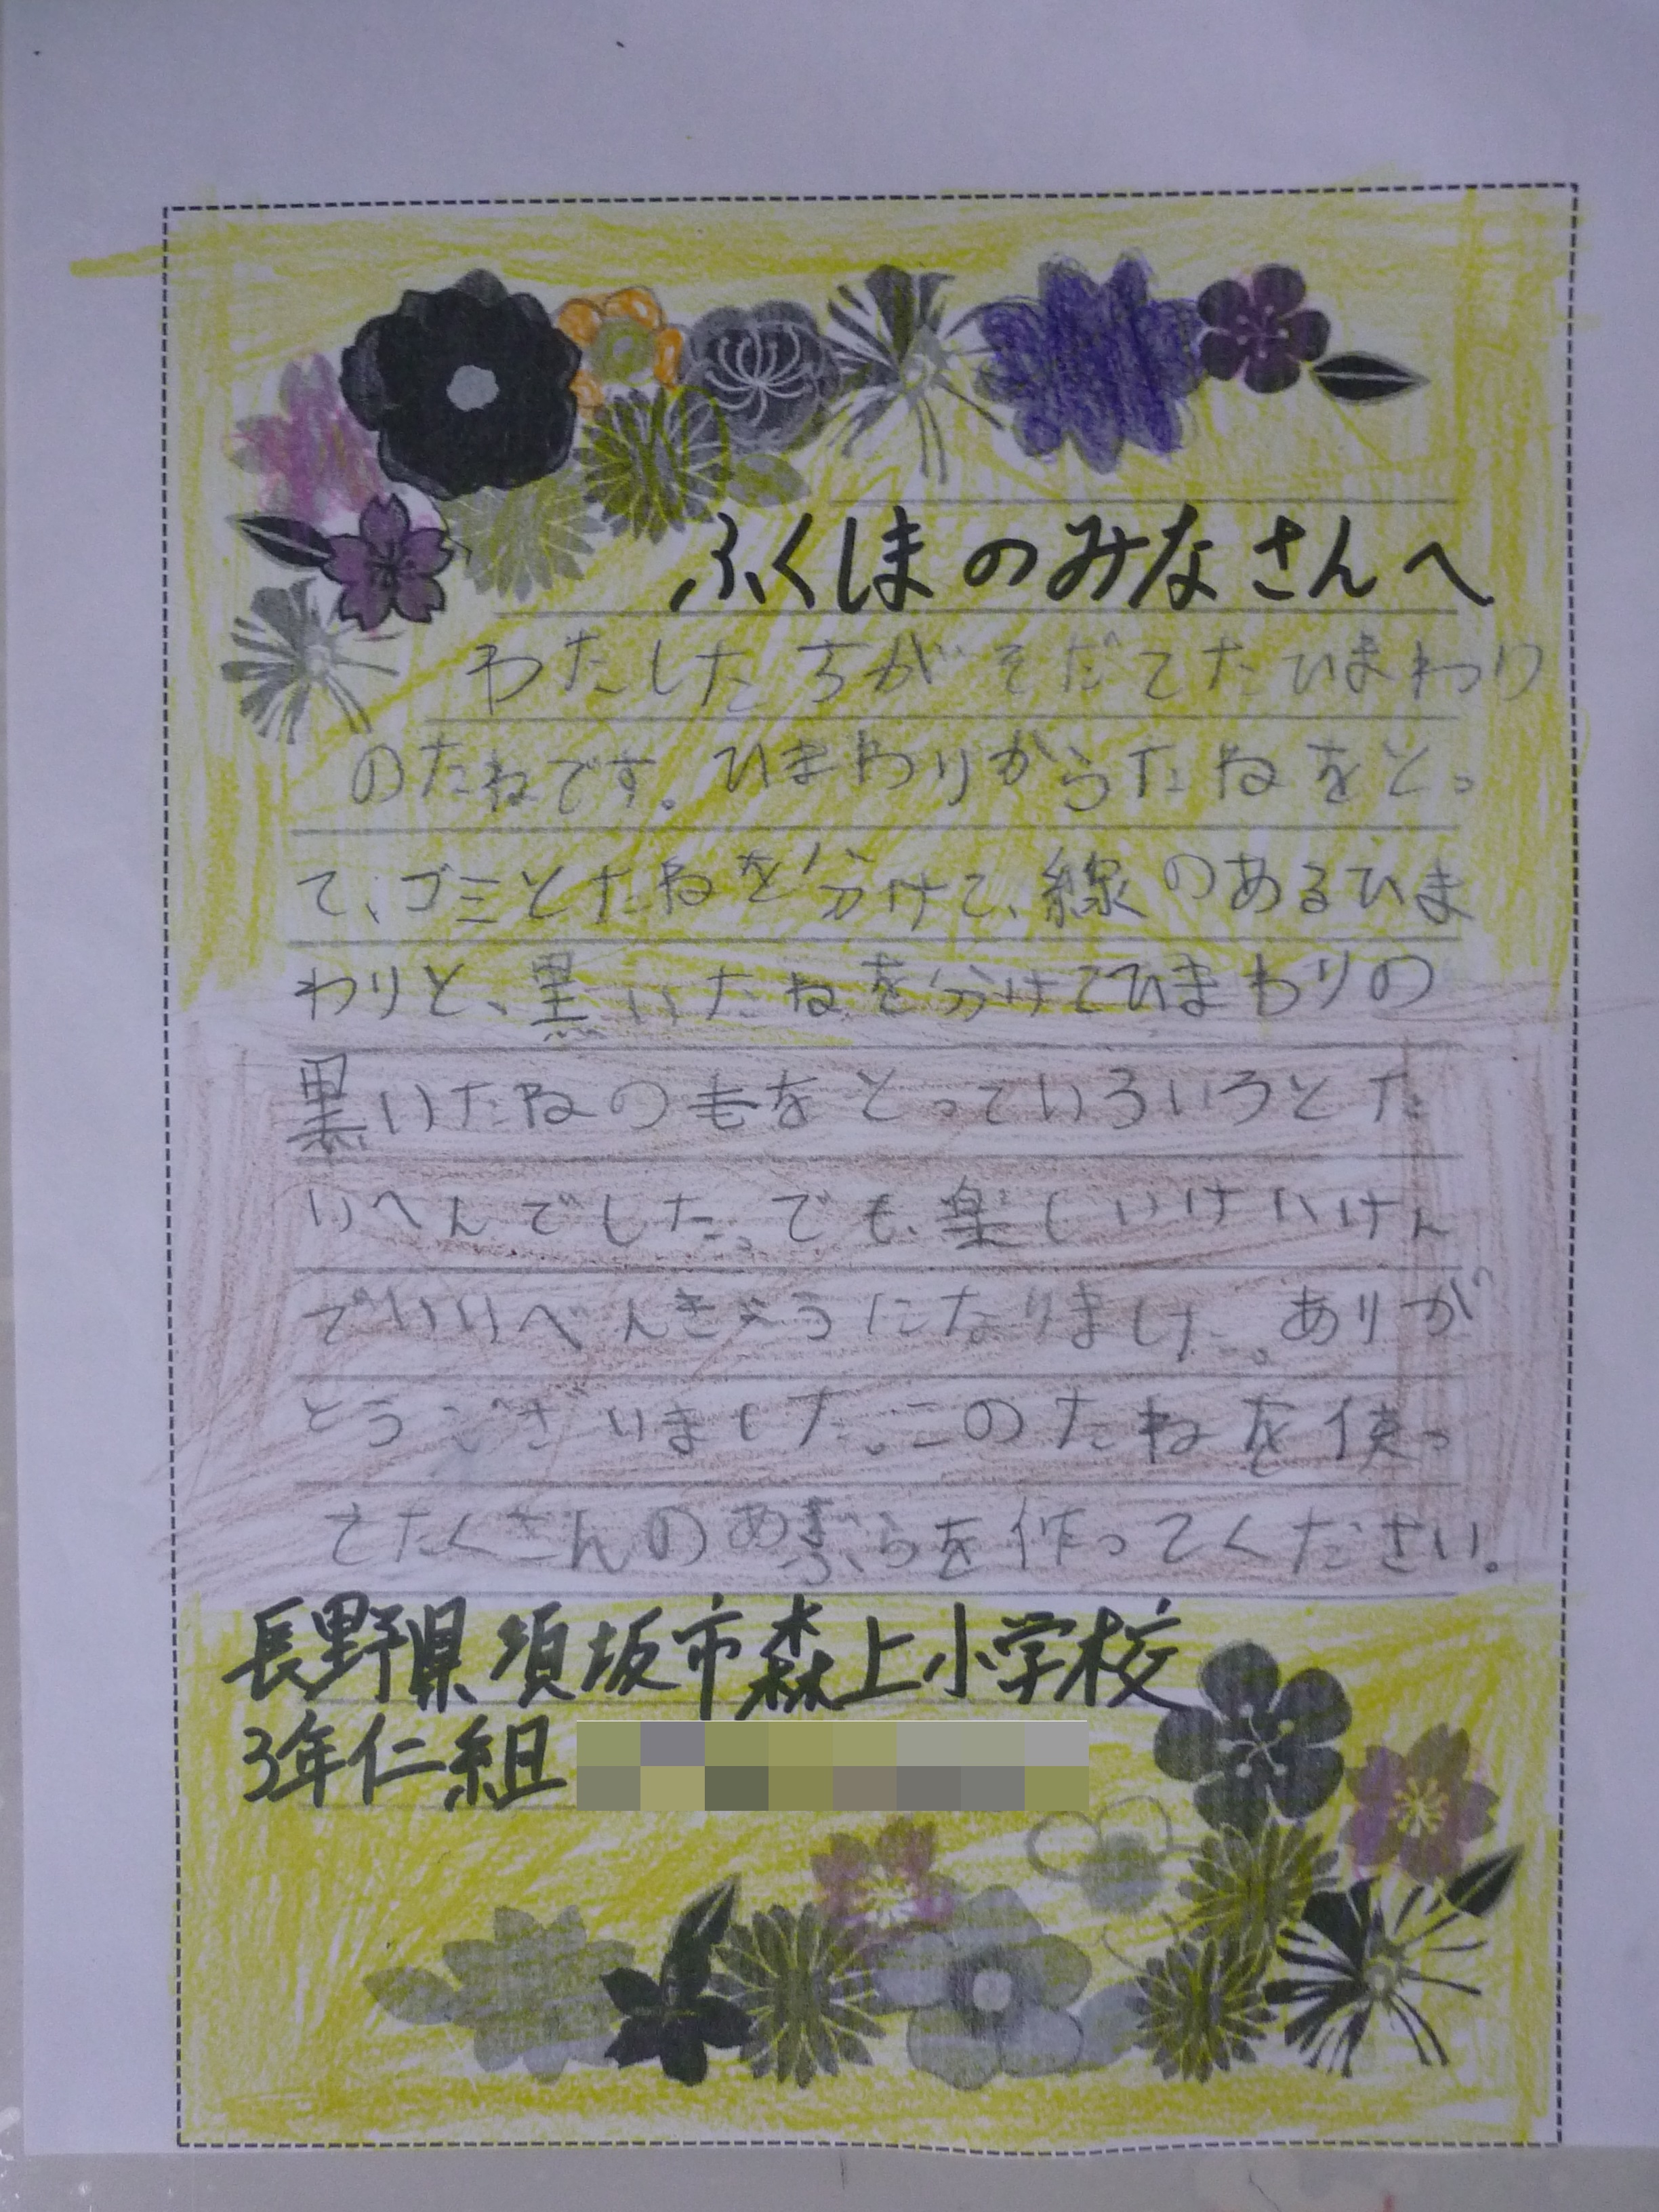 ふくしまのみなさんへ
わたしたちがそだてたひまわり
のたねです。ひまわりからたねをとっ
て、ゴミとたねを分けて、線のあるひま
わりと、黒いたねを分けてひまわりの
黒いたねの毛をとっていろいろとた
いへんでした。でも、楽しいけいけん
でいいべんきょうになりました。ありが
とうございました。このたねを使っ
てたくさんのあぶらを作ってください。
長野県須坂市森上小学校
3年仁組